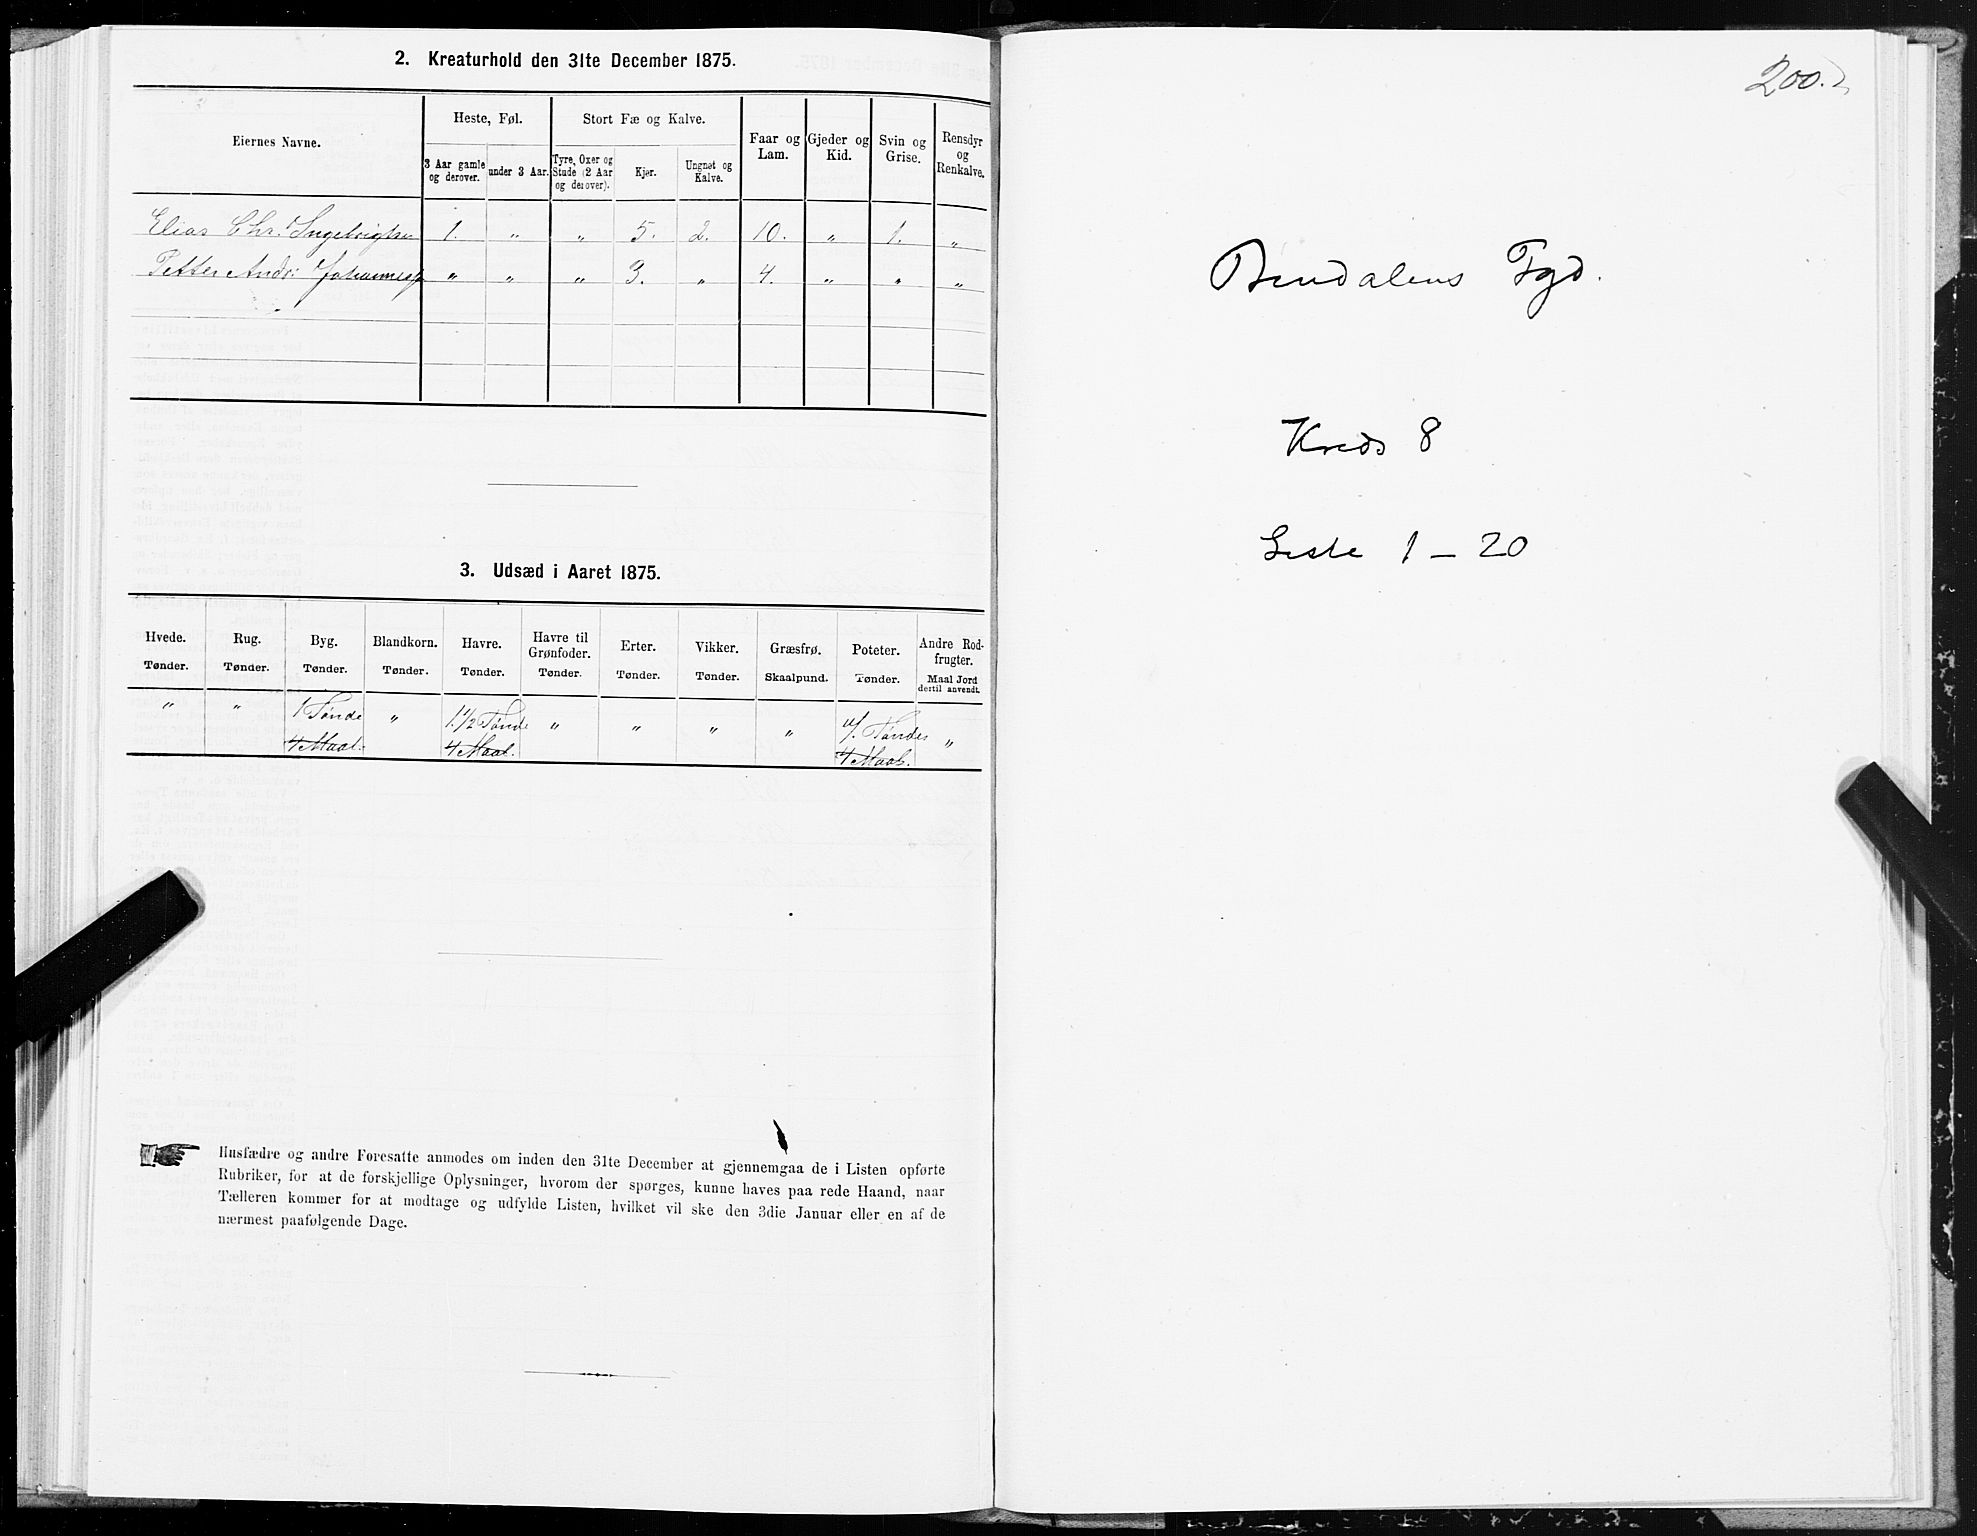 2. Kreaturhold den 31te December 1875.
Eiernes Navne.
Heste, Føl.
Stort Fæ og Kalve.
Faar og Lam.
Gjeder og Kid.
Svin og Grise.
Rensdyr og Renkalve.
3 Aar gamle og derover.
under 3 Aar.
Tyre, Oxer og Stude (2 Aar og derover).
Kjør.
Ungnøt og Kalve.
Elias Chr. Ingebrigtsen 1. " " 5. 2. 10. " 1. "
Petter Andr: Johannes " " " 3. " 4. " " "
3. Udsæd i Aaret 1875.
Hvede. Tønder.
Rug. Tønder.
Byg. Tønder.
Blandkorn. Tønder.
Havre. Tønder.
Havre til Grønfoder. Tønder.
Erter. Tønder.
Vikker. Tønder.
Græsfrø. Skaalpund.
Poteter. Tønder.
Andre Rodfrugter. Maal Jord dertil anvendt.
" " 1 Tønde " 1 1/2 Tønde " " " " Tønder "
4 Maal. 4 Maal. 4 Maal.
Husfædre og andre Foresatte anmodes om inden den 31te December at gjennemgaa de i Listen opførte
Rubriker, for at de forskjellige Oplysninger, hvorom der spørges, kunne haves paa rede Haand, naar
Tælleren kommer for at modtage og udfylde Listen, hvilket vil ske den 3die Januar eller en af de
nærmest paafølgende Dage.
200.
Bindalens Fgd.
Kreds 8
Liste 1 – 20